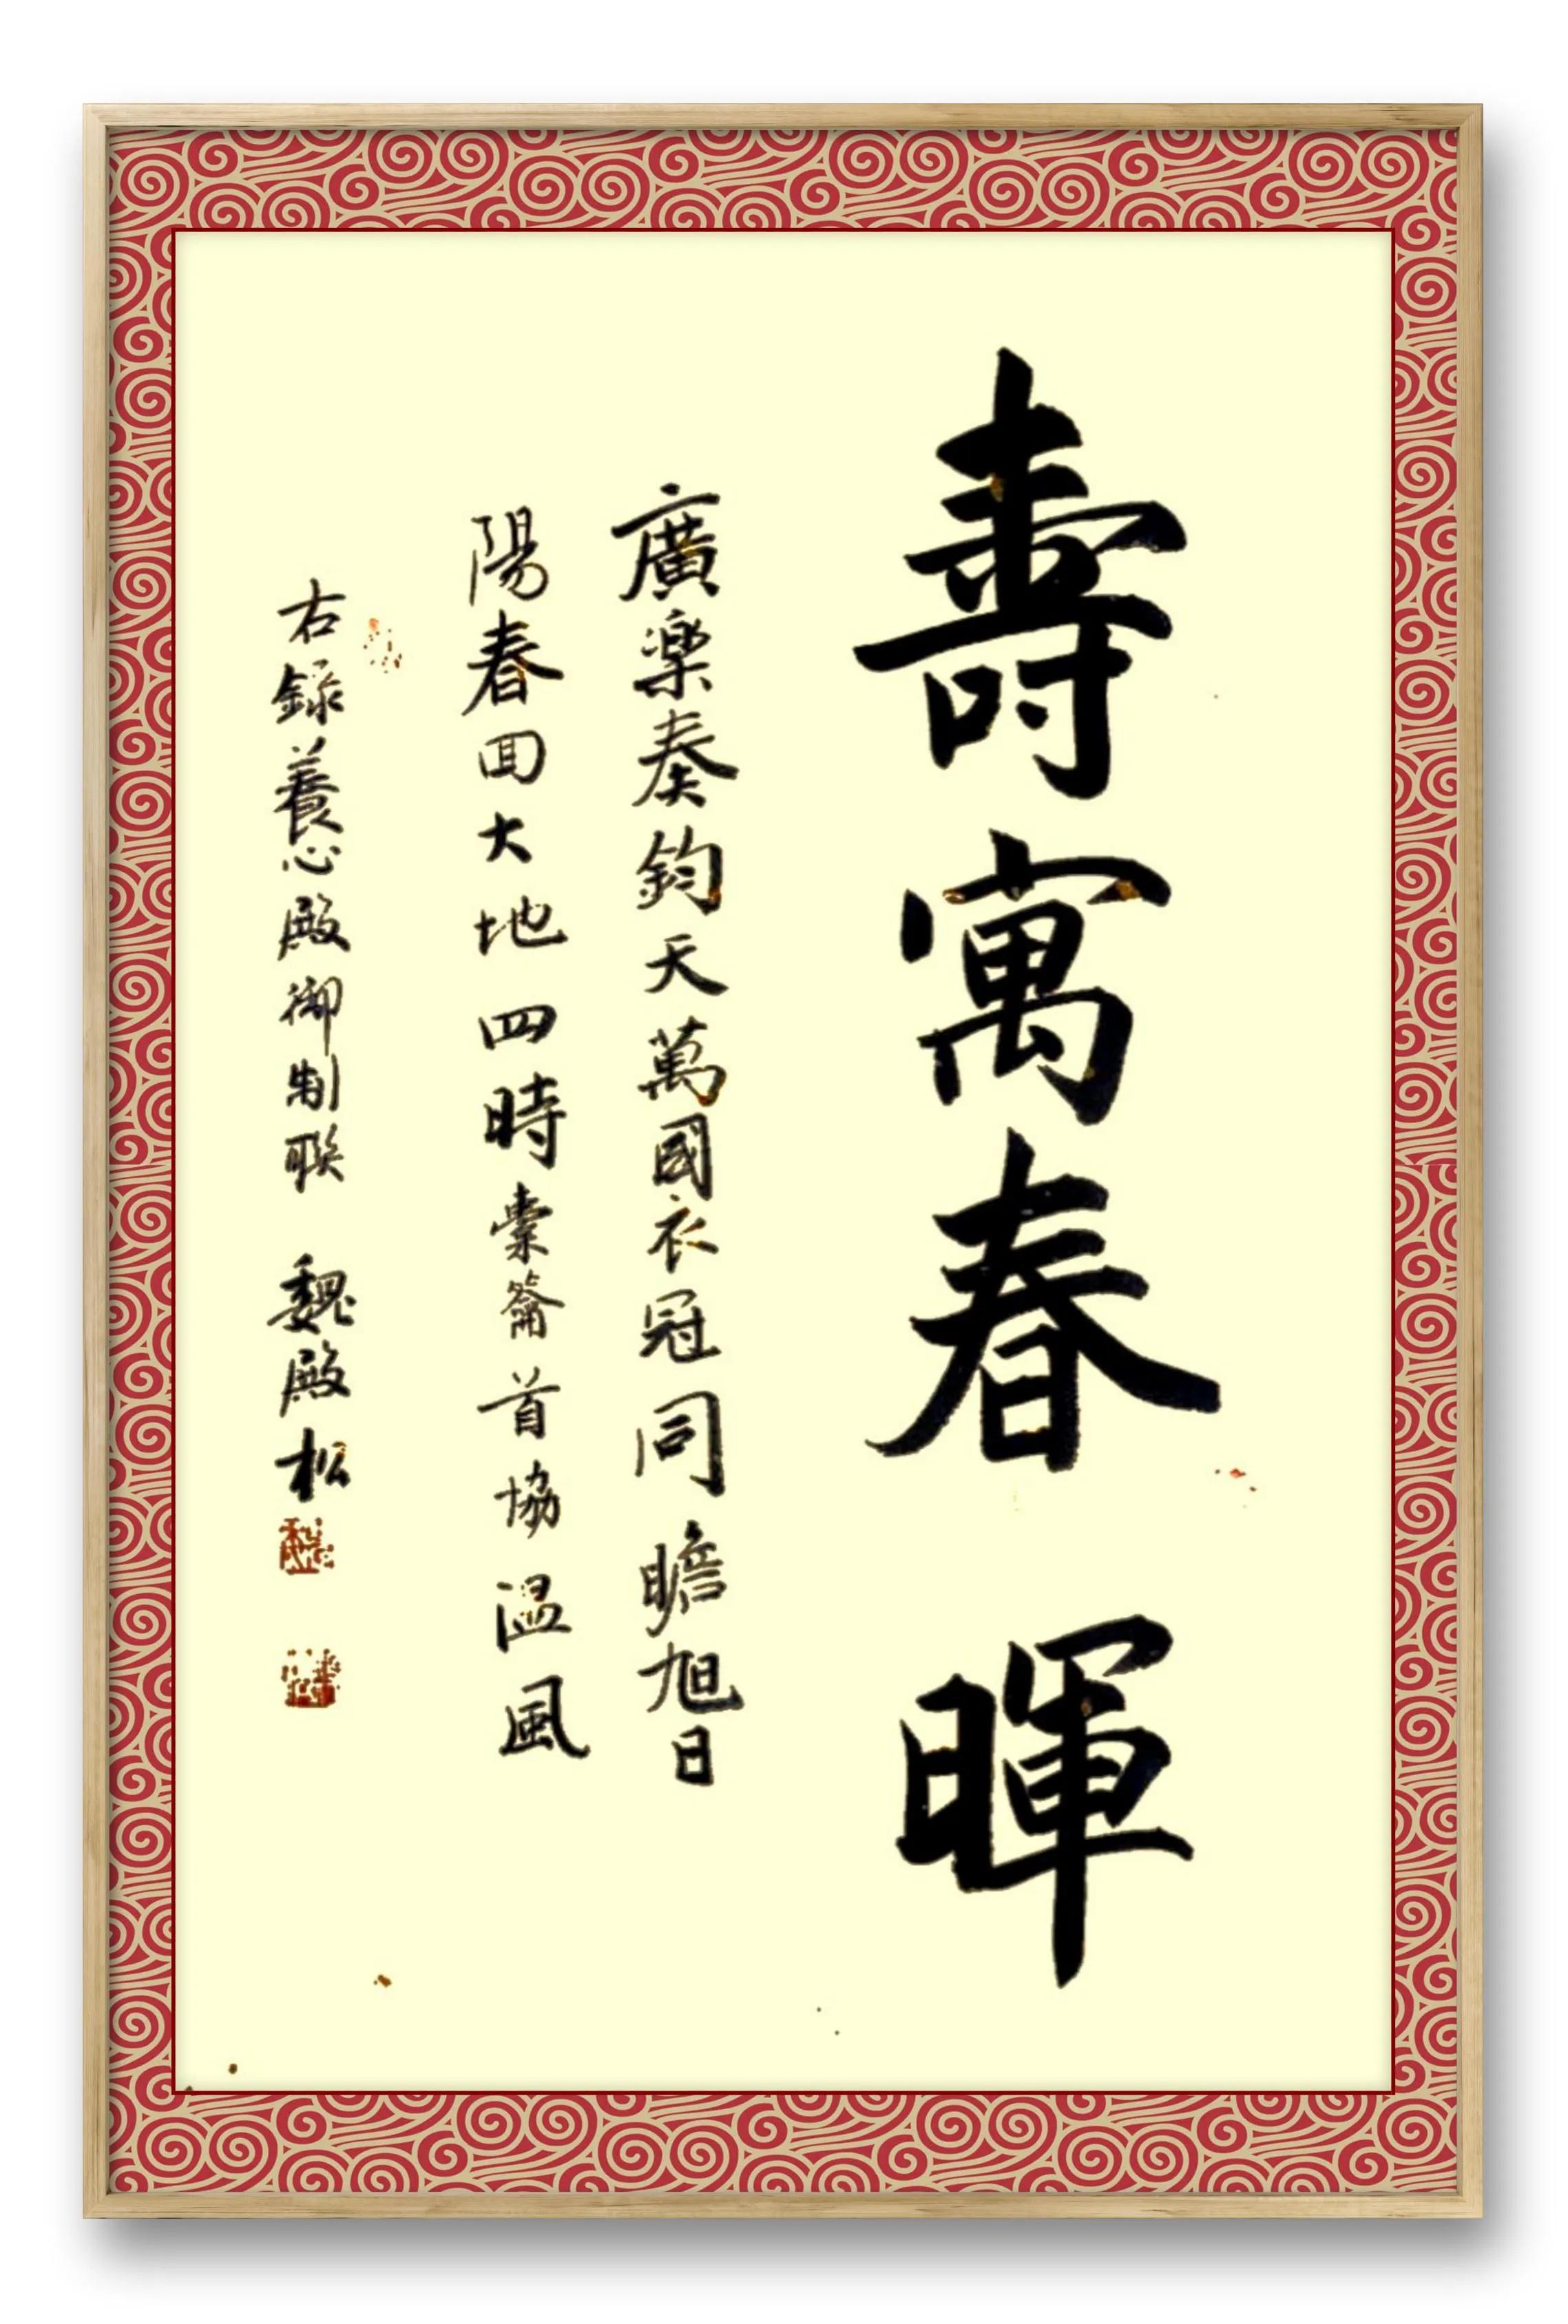 壽寓春暉
廣楽奏鈞天萬國衣冠同瞻旭日
陽春回大地四時橐籥首協温風
右録養心殿御制联 魏殿松